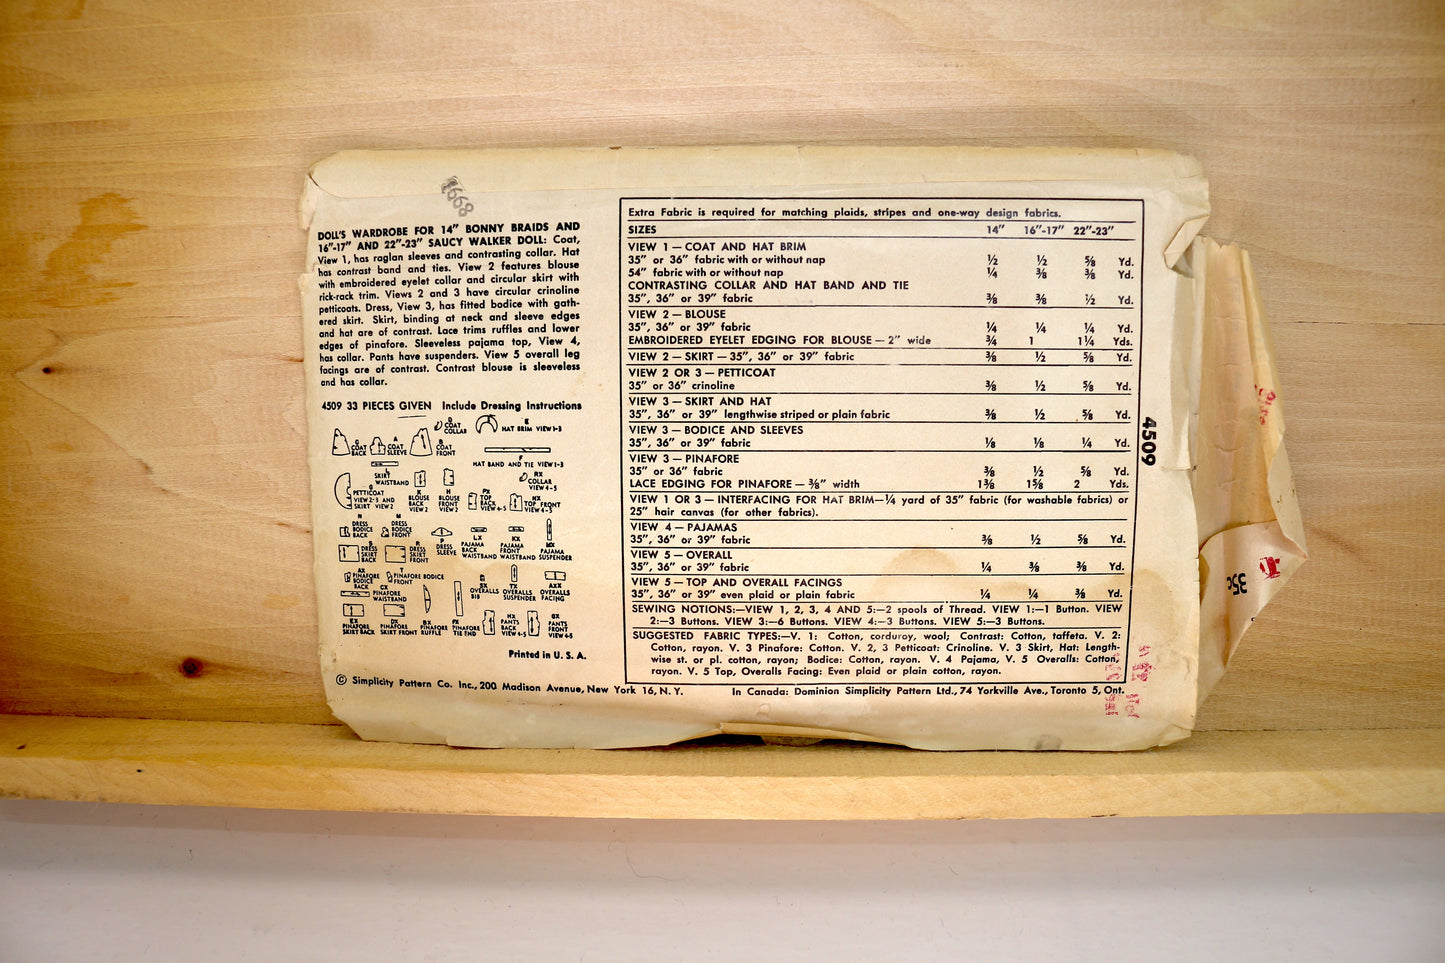 1668
DOLL'S WARDROBE FOR 14" BONNY BRAIDS AND
16"-17" AND 22"-23" SAUCY WALKER DOLL: Coat,
View 1, has raglan sleeves and contrasting collar. Hat
has contrast band and ties. View 2 features blouse
with embroidered eyelet collar and circular skirt with
rick-rack trim. Views 2 and 3 have circular crinoline
petticoats. Dress, View 3, has fitted bodice with gath-
ered skirt. Skirt, binding at neck and sleeve edges
and hat are of contrast. Lace trims ruffles and lower
edges of pinafore. Sleeveless pajama top, View 4,
has collar. Pants have suspenders. View 5 overall leg
facings are of contrast. Contrast blouse is sleeveless
and has collar.
4509 33 PIECES GIVEN Include Dressing Instructions
D COAT COLLAR
E HAT BRIM VIEW 1-3
COAT BACK
A COAT SLEEVE
B COAT FRONT
F HAT BAND AND TIE VIEW 1-3
L SKIRT WAISTBAND
RX COLLAR VIEW 4-5
G PETTICOAT VIEW 2-3 AND SKIRT VIEW 2
BLOUSE BACK VIEW 2
H BLOUSE FRONT VIEW 2
PX TOP BACK VIEW 4-5
NX TOP FRONT VIEW 4-5
N DRESS BODICE BACK
M DRESS BODICE FRONT
P DRESS SLEEVE
LX PAJAMA BACK WAISTBAND
KX PAJAMA FRONT WAISTBAND
MX PAJAMA SUSPENDER
S DRESS SKIRT BACK
R DRESS SKIRT FRONT
AX PINAFORE BODICE BACK
T PINAFORE BODICE FRONT
CX PINAFORE WAISTBAND
SX OVERALLS BIB
TX OVERALLS SUSPENDER
AXX OVERALLS FACING
EX PINAFORE SKIRT BACK
DX PINAFORE SKIRT FRONT
BX PINAFORE RUFFLE
FX PINAFORE TIE END
HX PANTS BACK VIEW 4-5
GX PANTS FRONT VIEW 4-5
Printed in U. S. A.
© Simplicity Pattern Co. Inc., 200 Madison Avenue, New York 16, N. Y.
Extra Fabric is required for matching plaids, stripes and one-way design fabrics.
SIZES 14" 16"-17" 22"-23"
VIEW 1 — COAT AND HAT BRIM
35" or 36" fabric with or without nap ½ ½ ⅝ Yd.
54" fabric with or without nap ¼ ⅜ ⅜ Yd.
CONTRASTING COLLAR AND HAT BAND AND TIE
35", 36" or 39" fabric ⅜ ⅜ ½ Yd.
VIEW 2 — BLOUSE
35", 36" or 39" fabric ¼ ¼ ¼ Yd.
EMBROIDERED EYELET EDGING FOR BLOUSE — 2" wide ¾ 1 1¼ Yds.
VIEW 2 — SKIRT — 35", 36" or 39" fabric ⅜ ½ ⅝ Yd.
VIEW 2 OR 3 — PETTICOAT
35" or 36" crinoline ⅜ ½ ⅝ Yd.
VIEW 3 — SKIRT AND HAT
35", 36" or 39" lengthwise striped or plain fabric ⅜ ½ ⅝ Yd.
VIEW 3 — BODICE AND SLEEVES
35", 36" or 39" fabric ⅛ ⅛ ¼ Yd.
VIEW 3 — PINAFORE
35" or 36" fabric ⅜ ½ ⅝ Yd.
LACE EDGING FOR PINAFORE — ⅜" width 1⅜ 1⅝ 2 Yds.
VIEW 1 OR 3 — INTERFACING FOR HAT BRIM—¼ yard of 35" fabric (for washable fabrics) or
25" hair canvas (for other fabrics).
VIEW 4 — PAJAMAS
35", 36" or 39" fabric ⅜ ½ ⅝ Yd.
VIEW 5 — OVERALL
35", 36" or 39" fabric ¼ ⅜ ⅜ Yd.
VIEW 5 — TOP AND OVERALL FACINGS
35", 36" or 39" even plaid or plain fabric ¼ ¼ ⅜ Yd.
SEWING NOTIONS:—VIEW 1, 2, 3, 4 AND 5:—2 spools of Thread. VIEW 1:—1 Button. VIEW
2:—3 Buttons. VIEW 3:—6 Buttons. VIEW 4:—3 Buttons. VIEW 5:—3 Buttons.
SUGGESTED FABRIC TYPES:—V. 1: Cotton, corduroy, wool; Contrast: Cotton, taffeta. V. 2:
Cotton, rayon. V. 3 Pinafore: Cotton. V. 2, 3 Petticoat: Crinoline. V. 3 Skirt, Hat: Length-
wise st. or pl. cotton, rayon; Bodice: Cotton, rayon. V. 4 Pajama, V. 5 Overalls: Cotton,
rayon. V. 5 Top, Overalls Facing: Even plaid or plain cotton, rayon.
In Canada: Dominion Simplicity Pattern Ltd., 74 Yorkville Ave., Toronto 5, Ont.
4509
35c